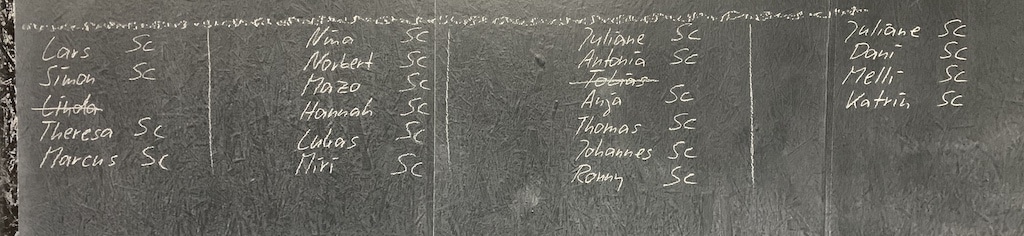 Lars Sc
Simon Sc
Linda
Theresa Sc
Marcus Sc
Nina Sc
Norbert Sc
Mazo Sc
Hannah Sc
Lukas Sc
Miri Sc
Juliane Sc
Antonia Sc
Tobias
Anja Sc
Thomas Sc
Johannes Sc
Ronny Sc
Juliane Sc
Dani Sc
Melli Sc
Katrin Sc